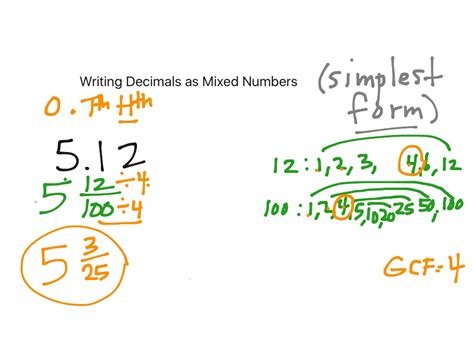 Writing Decimals as Mixed Numbers
(simplest form)
0 . Th Hth
5.12
5 12/100 ÷4 ÷4
5 3/25
12 : 1, 2, 3, 4, 6, 12
100 : 1, 2, 4, 5, 10, 20 25 50, 100
GCF = 4